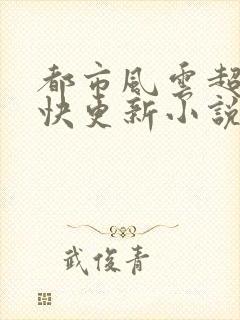 都市風雲超
快更新小說
武俊青